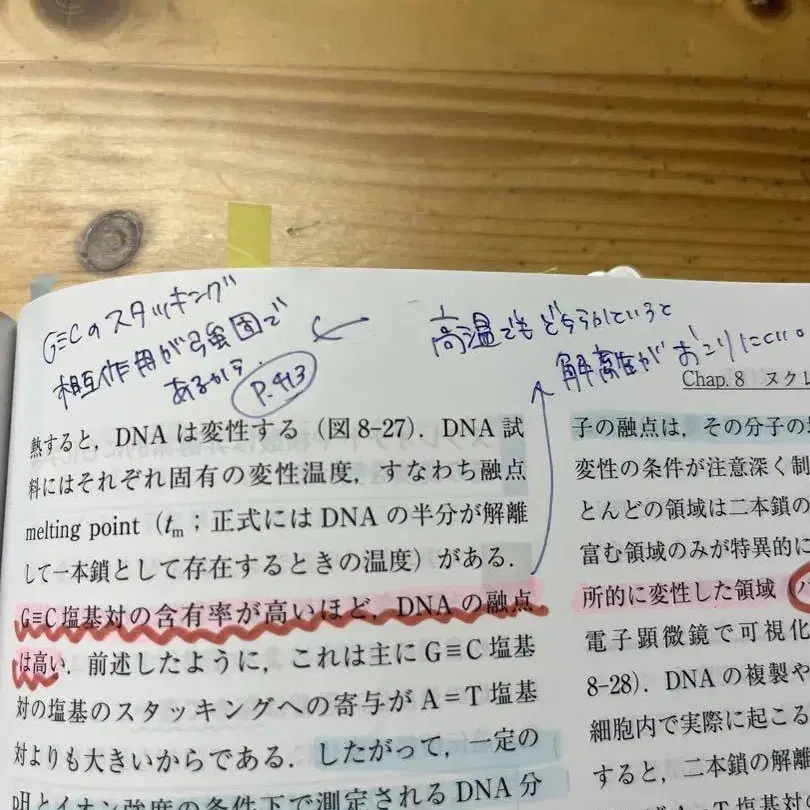 G≡Cのスタッキング
相互作用が強固で
あるから.
P.413
高温でもどちらかというと
解離がおこりにくい。
Chap. 8 ヌクレ
熱すると，DNA は変性する（図8-27）．DNA 試
料にはそれぞれ固有の変性温度，すなわち融点
melting point（tm；正式には DNA の半分が解離
して一本鎖として存在するときの温度）がある．
G≡C 塩基対の含有率が高いほど，DNA の融点
は高い．前述したように，これは主に G≡C 塩基
対の塩基のスタッキングへの寄与が A＝T 塩基
対よりも大きいからである．したがって，一定の
pH とイオン強度の条件下で測定される DNA 分
子の融点は，その分子の
変性の条件が注意深く制
とんどの領域は二本鎖の
富む領域のみが特異的に
所的に変性した領域（バ
電子顕微鏡で可視化
8-28）．DNA の複製や
細胞内で実際に起こる
すると，二本鎖の解離
T 塩基対の